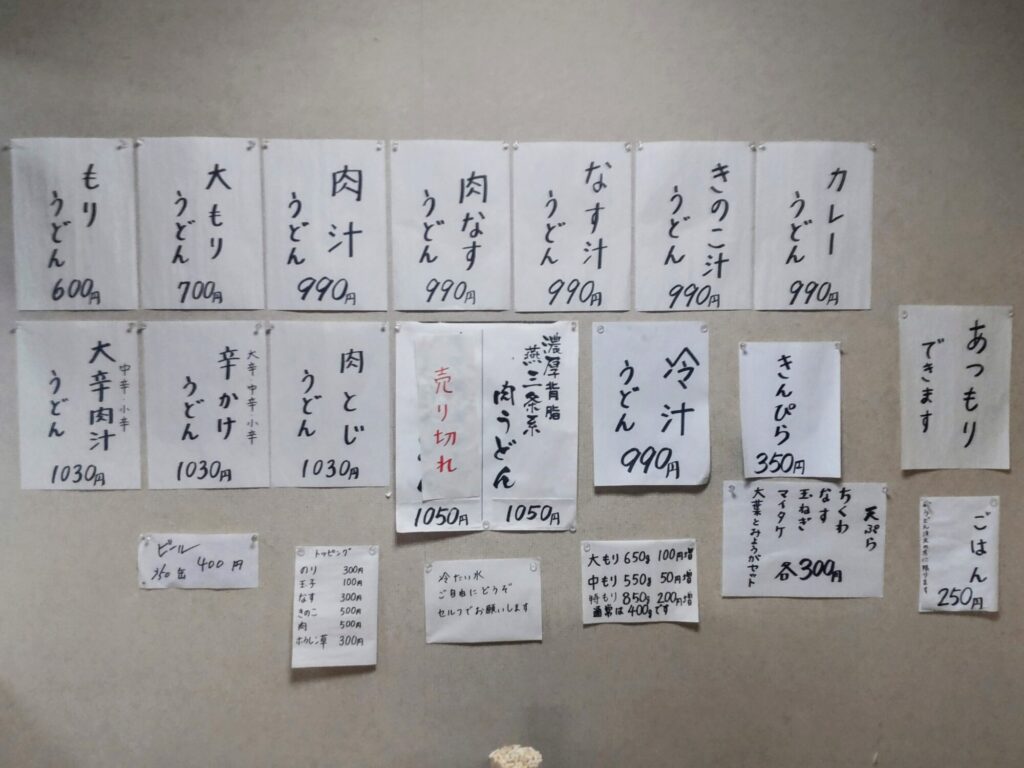 もり
うどん
600円
大もり
うどん
700円
肉汁
うどん
990円
肉なす
うどん
990円
なす汁
うどん
990円
きのこ汁
うどん
990円
カレー
うどん
990円
中辛 小辛
大辛肉汁
うどん
1030円
大辛 中辛 小辛
辛かけ
うどん
1030円
肉とじ
うどん
1030円
売り切れ
1050円
濃厚背脂
燕三条系
肉うどん
1050円
冷汁
うどん
990円
きんぴら
350円
あつもり
できます
天ぷら
ちくわ
なす
玉ねぎ
マイタケ
大葉とみょうがセット
各300円
ごはん
250円
ビール
350缶 400円
トッピング
のり 300円
玉子 100円
なす 300円
きのこ 500円
肉 500円
ホウレン草 300円
冷たい水
ご自由にどうぞ
セルフでお願いします
大もり 650g 100円増
中もり 550g 50円増
特もり 850g 200円増
通常は400gです